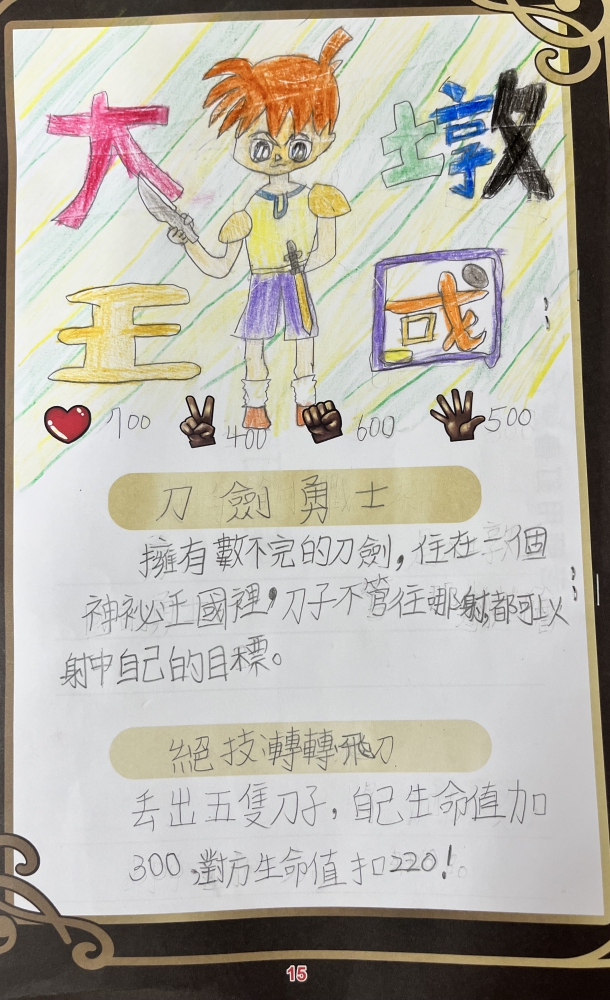 大墩
王國
700 400 600 500
刀劍勇士
擁有數不完的刀劍，住在一個
神祕王國裡，刀子不管往哪射，都可以
射中自己的目標。
絕技轉轉飛刀
丟出五隻刀子，自己生命值加
300，對方生命值扣220！
15